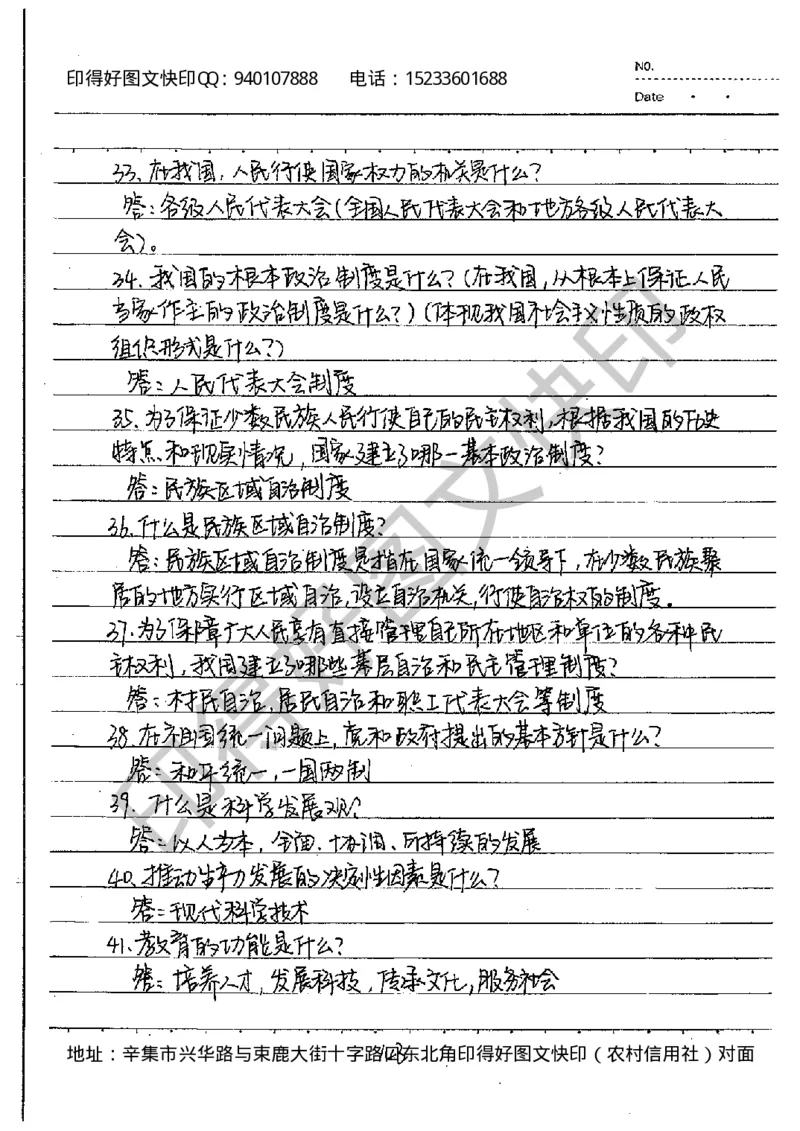 印得好图文快印QQ：940107888 电话：15233601688
NO.
Date
33、在我国，人民行使国家权力的机关是什么？
答：各级人民代表大会（全国人民代表大会和地方各级人民代表大
会）。
34、我国的根本政治制度是什么？（在我国，从根本上保证人民
当家作主的政治制度是什么？）（体现我国社会主义性质的政权
组织形式是什么？）
答：人民代表大会制度
35、为了保证少数民族人民行使自己的民主权利，根据我国的历史
特点和现实情况，国家建立了哪一基本政治制度？
答：民族区域自治制度
36、什么是民族区域自治制度？
答：民族区域自治制度是指在国家统一领导下，在少数民族聚
居的地方实行区域自治，设立自治机关，行使自治权的制度。
37、为了保障广大人民享有直接管理自己所在地区和单位的各种民
主权利，我国建立了哪些基层自治和民主管理制度？
答：村民自治，居民自治和职工代表大会等制度
38、在祖国统一问题上，党和政府提出的基本方针是什么？
答：和平统一，一国两制
39、什么是科学发展观？
答：以人为本，全面、协调、可持续的发展
40、推动生产力发展的决定性因素是什么？
答：现代科学技术
41、教育的功能是什么？
答：培养人才，发展科技，传承文化，服务社会
地址：辛集市兴华路与束鹿大街十字路口东北角印得好图文快印（农村信用社）对面
印得好图文快印